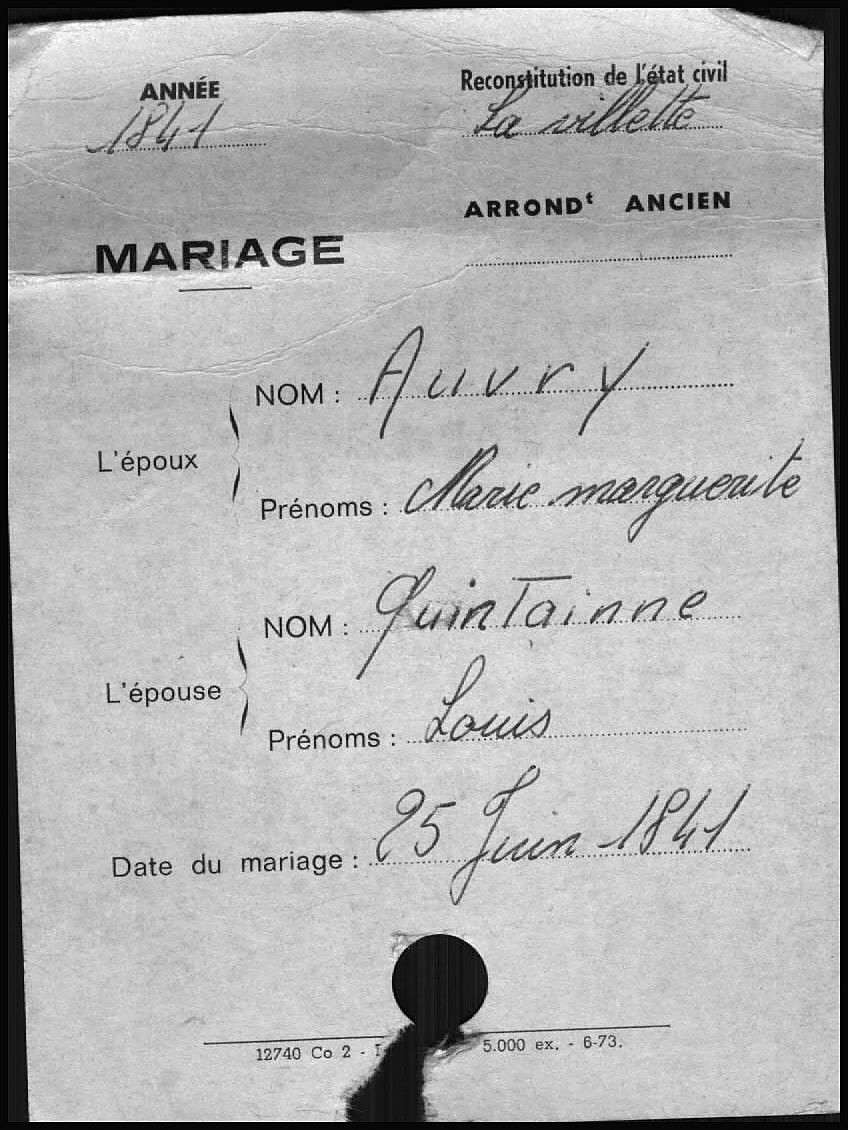 ANNÉE
1841
Reconstitution de l'état civil
La villette
ARRONDt ANCIEN
MARIAGE
L'époux
NOM : Auvry
Prénoms : Marie marguerite
L'épouse
NOM : Quintainne
Prénoms : Louis
Date du mariage : 25 Juin 1841
12740 Co 2 - 5.000 ex. - 6-73.